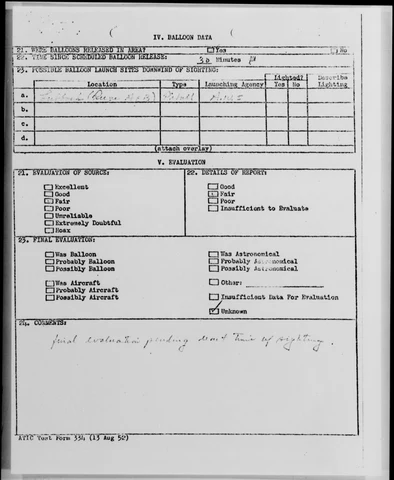 IV. BALLOON DATA
21. WERE BALLOONS RELEASED IN AREA? Yes No
22. TIME SINCE SCHEDULED BALLOON RELEASE: 30 Minutes
23. POSSIBLE BALLOON LAUNCH SITES DOWNWIND OF SIGHTING:
Lighted? Describe
Location Type Launching Agency Yes No Lighting
a.
b.
c.
d.
(attach overlay)
V. EVALUATION
21. EVALUATION OF SOURCE: 22. DETAILS OF REPORT:
Excellent Good
Good Fair
Fair Poor
Poor Insufficient to Evaluate
Unreliable
Extremely Doubtful
Hoax
23. FINAL EVALUATION:
Was Balloon Was Astronomical
Probably Balloon Probably Astronomical
Possibly Balloon Possibly Astronomical
Was Aircraft Other:
Probably Aircraft
Possibly Aircraft Insufficient Data For Evaluation
Unknown
24. COMMENTS:
final evaluation pending time of sighting.
ATIC Test Form 334 (13 Aug 52)